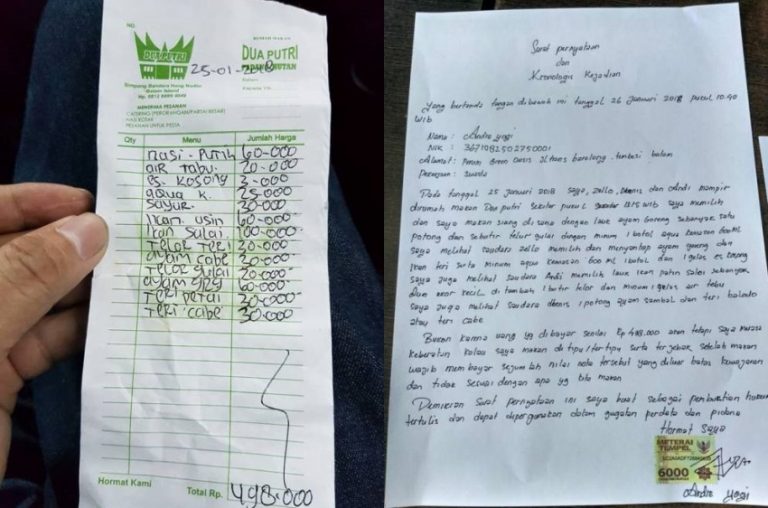 NO.
DUA PUTRI
RUMAH MAKAN
DUA PUTRI
25-01-2018
Simpang Bandara Hang Nadim
Batam Island
Hp. 0812
MENERIMA PESANAN
CATERING (PERORANGAN/PARTAI BESAR)
NASI KOTAK
PESANAN UNTUK PESTA
Qty Menu Jumlah Harga
nasi. Putih 60-000
air tabu. 20-000
es. kosong
k.
sayur 20-000
Ikan. asin 60-000
Ikan Salai. 100-000
Telor Teri 20-000
ayam cabe 20-000
Telor gulai 20-000
ayam 60-000
Teri petai 30-000
Teri cabe 30-000
Hormat Kami
Total Rp. 498-000
Surat pernyataan
dan
Kronologis Kejadian
Yang bertanda tangan dibawah ini tanggal 26 Januari 2018 pukul 10.40
WIB
Nama : Andre Yogi
NIK : 3671082502750001
Alamat : Perum Green Oasis tembesi batam
Pekerjaan : Swasta
Pada tanggal 25 Januari 2018 saya, Zello, Dennis dan Andi mampir
dirumah makan Dua putri sekitar pukul WIB saya memilih
dan saya makan siang di sana dengan lauk ayam Goreng sebanyak satu
potong dan sebutir telur gulai dengan minum 1 botol aqua kemasan 600 ml
saya melihat saudara zello memilih dan menyantap ayam goreng dan
ikan teri serta minum aqua kemasan 600 ml 1 botol dan 1 gelas es kosong
saya juga melihat saudara Andi memilih lauk ikan patin salai sebanyak
ekor kecil di tambah 1 butir telor dan minum 1 gelas air tebu
saya juga melihat saudara dennis 1 potong ayam sambal dan teri balado
atau teri cabe
Bukan karna uang yg dibayar senilai Rp 498.000 akan tetapi saya merasa
keberatan kalau saya makan di tipu / tertipu serta terjebak setelah makan
wajib membayar sejumlah nilai nota tersebut yang diluar batas kewajaran
dan tidak sesuai dengan apa yg kita makan
Demikian Surat pernyataan ini saya buat sebagai pembuktian hukum
tertulis dan dapat dipergunakan dalam gugatan perdata dan pidana
Hormat Saya
METERAI
TEMPEL
6000
Andre Yogi